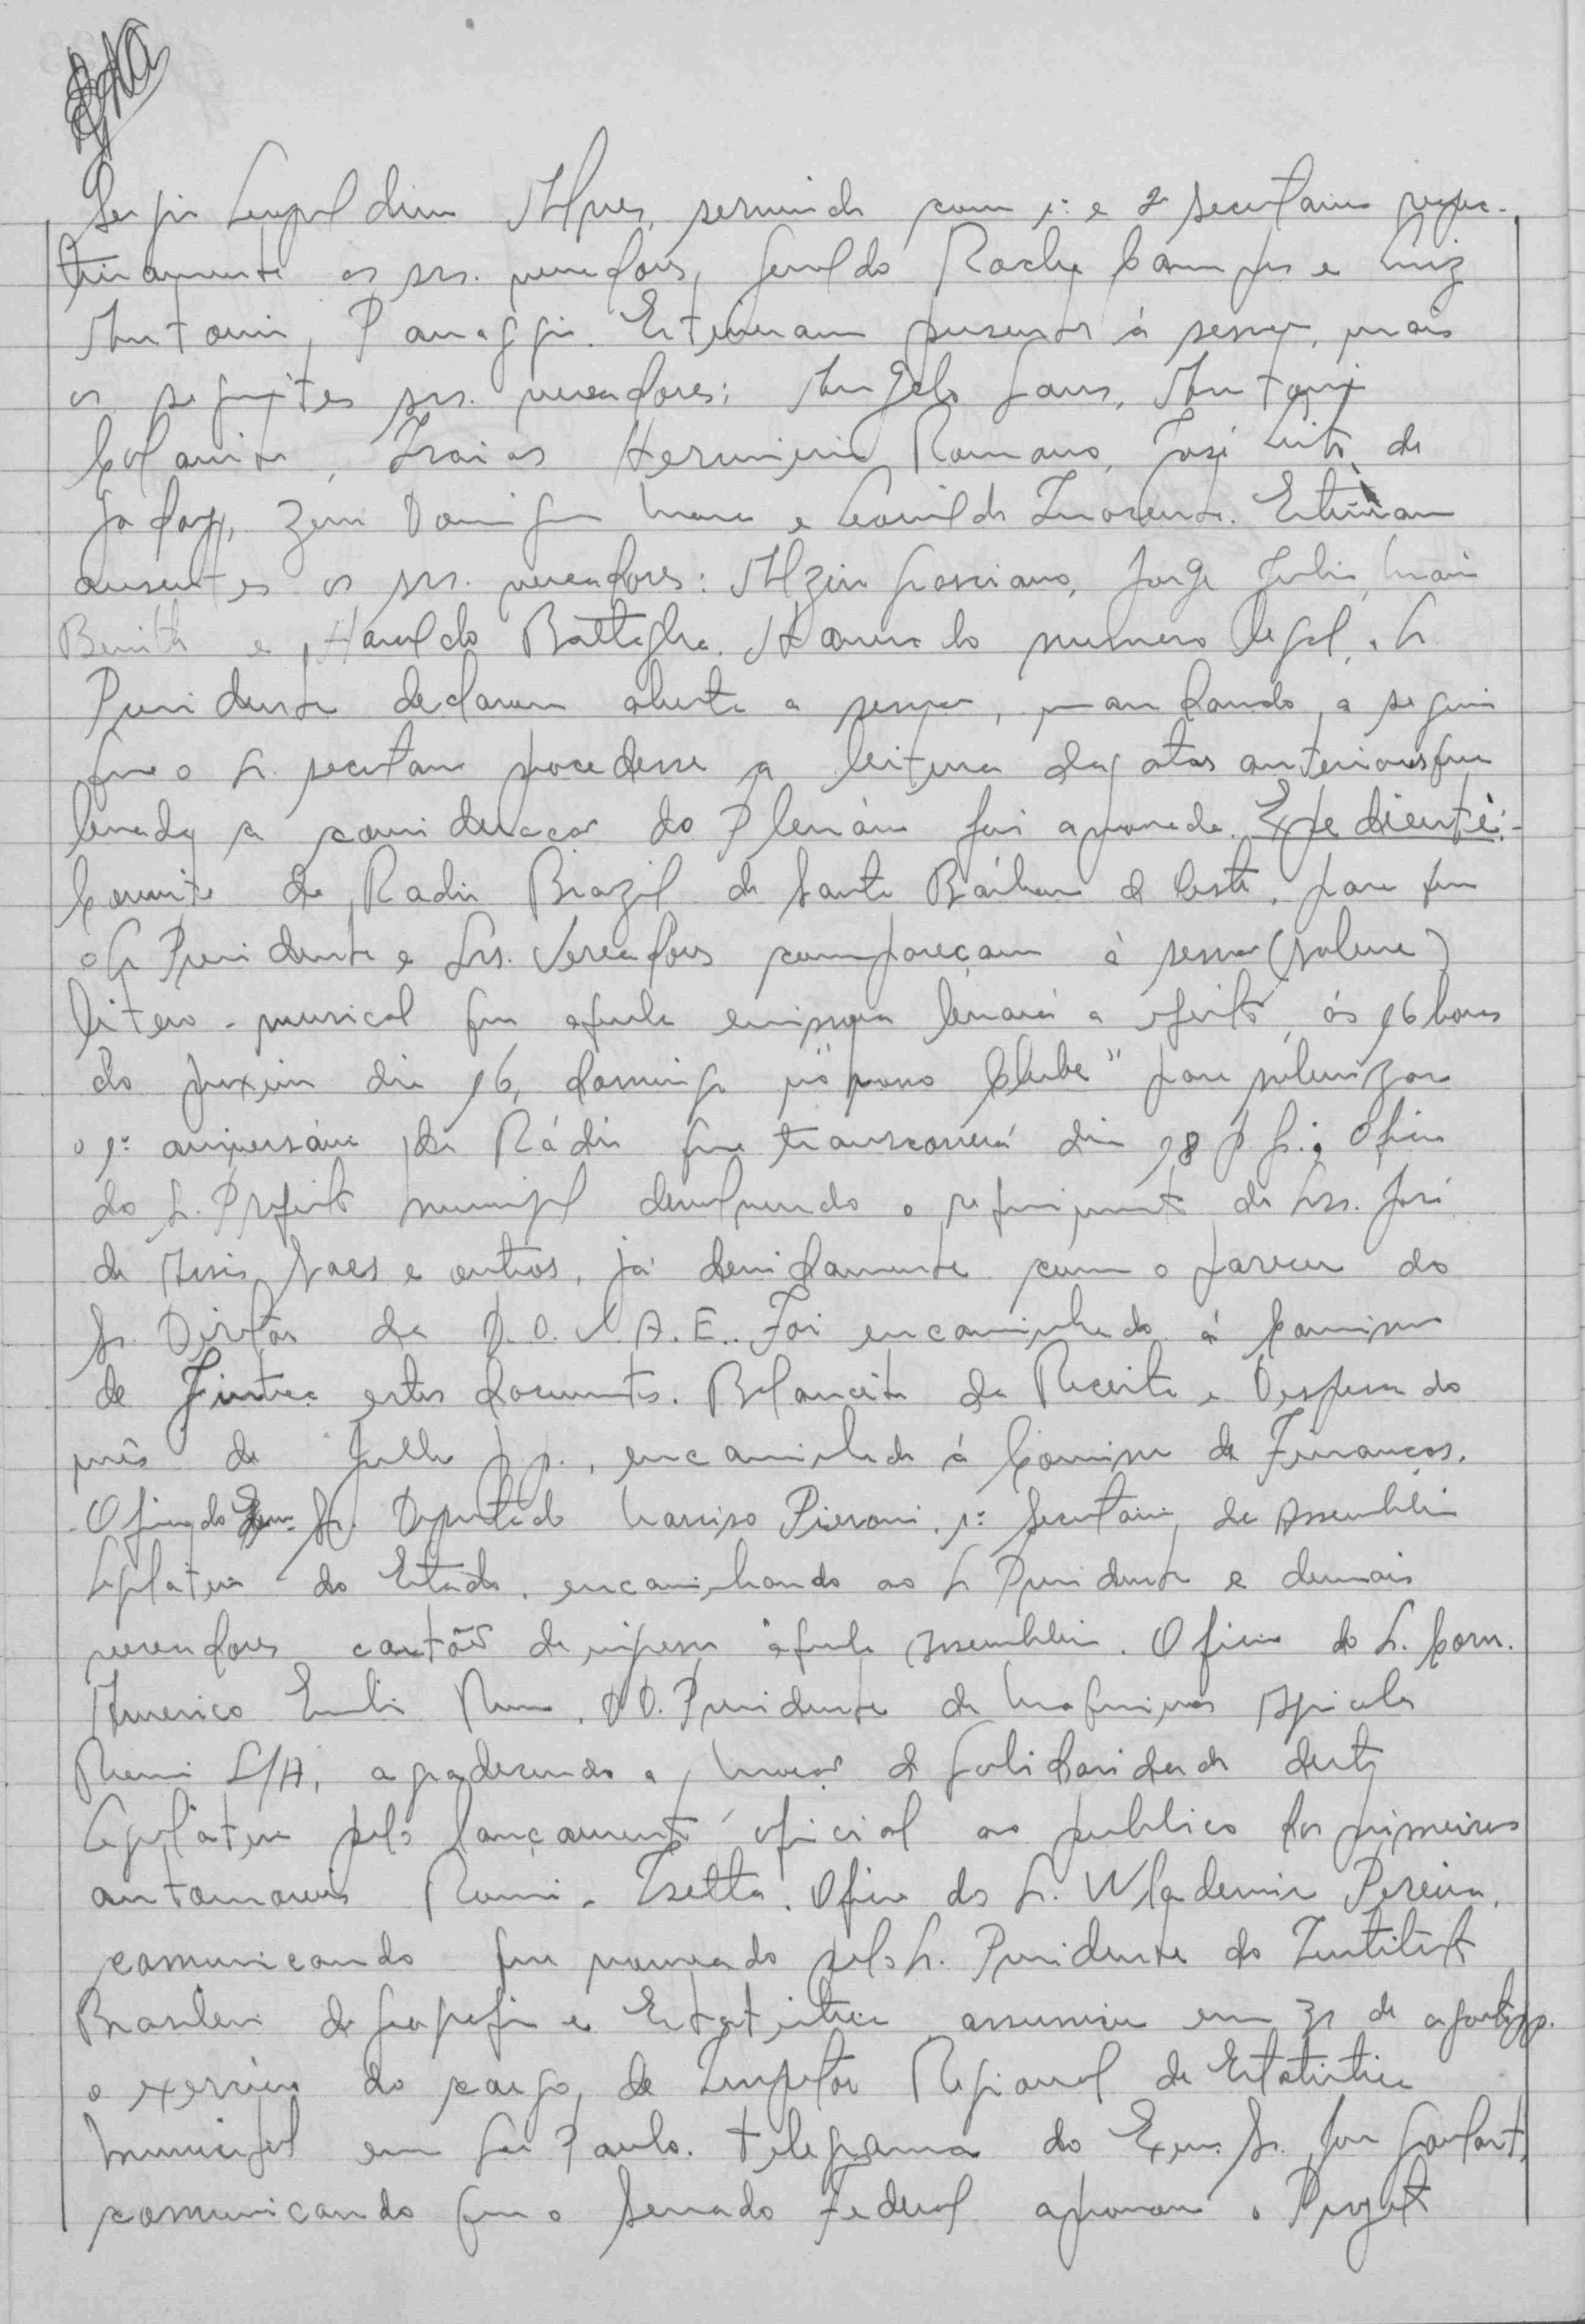 Sergio Leopoldino Alves, servindo como 1º e 2º secretarios respec-
tivamente os srs. vereadores, Geraldo Rocha Campos e Luiz
Antonio Panaggio. Estiveram presentes á sessão, mais
os seguintes srs. vereadores: Angelo Sans, Antonio
Isaias Herminio Romano, José Leite de
Godoy, Domingos e Leonildo Inocente. Estiveram
ausentes os srs. vereadores: Alziro Jorge Julio,
e Haroldo Battaglia. Havendo numero legal, o Sr.
Presidente declarou aberta a sessão, mandando a seguir
que o Sr. secretario procedesse a leitura das atas anteriores que
levada a consideração do Plenário foi aprovada. Expediente:-
Convite da Radio Brazil de Santa Bárbara d'Oeste, para que
o Sr Presidente e Srs. Vereadores compareçam á sessão (solene)
litero-musical que aquela emissora levará a efeito, ás 16 horas
do proximo dia 16, domingo no "nosso Clube" para solenizar
o 1º aniversário da Rádio que transcorrerá dia 18 p f.; Oficio
do Sr. Prefeito municipal devolvendo o requerimento de Srs. José
de Assis Saes e outros, já devidamente com o parecer do
Sr. Diretor da D.O.V.A.E.. Foi encaminhado á Comissão
de Justiça estes documentos. Balancete da Receita e Despesa do
mês de Julho p.p., encaminhado á Comissão de Finanças.
Oficio do Exmo. Sr. Deputado Narciso Pieroni, 1º Secretario da Assembléia
Legislativa do Estado, encaminhando ao Sr Presidente e demais
vereadores cartão de ingresso áquela Assembléia. Oficio do Sr. Com.
Americo Emilio Romi, DD. Presidente de Maquinas Agricolas
Romi S/A, agradecendo a Moção de Solidariedade desta
Legislativa pelo lançamento oficial ao publico dos primeiros
automoveis Romi-Isetta. Oficio do Sr. Wlademir Pereira,
comunicando que nomeado pelo Sr. Presidente do Instituto
Brasileiro de Geografia e Estatistica assumiu em 31 de agosto pp.
o exercicio do cargo, de Inspetor Regional de Estatistica
Municipal em São Paulo. Telegrama do Exmo. Sr. João Goulart,
comunicando que o Senado Federal aprovou o Projeto